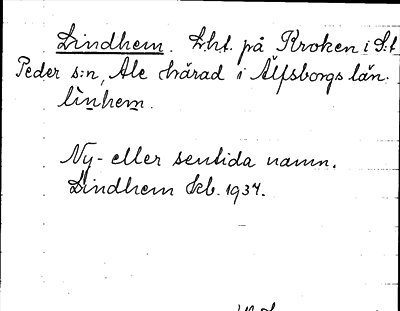 Lindhem. Lht. på Kroken i S:t
Peder s:n, Ale härad i Älfsborgs län.
linhem.
Ny- eller sentida namn.
Lindhem kb. 1934.